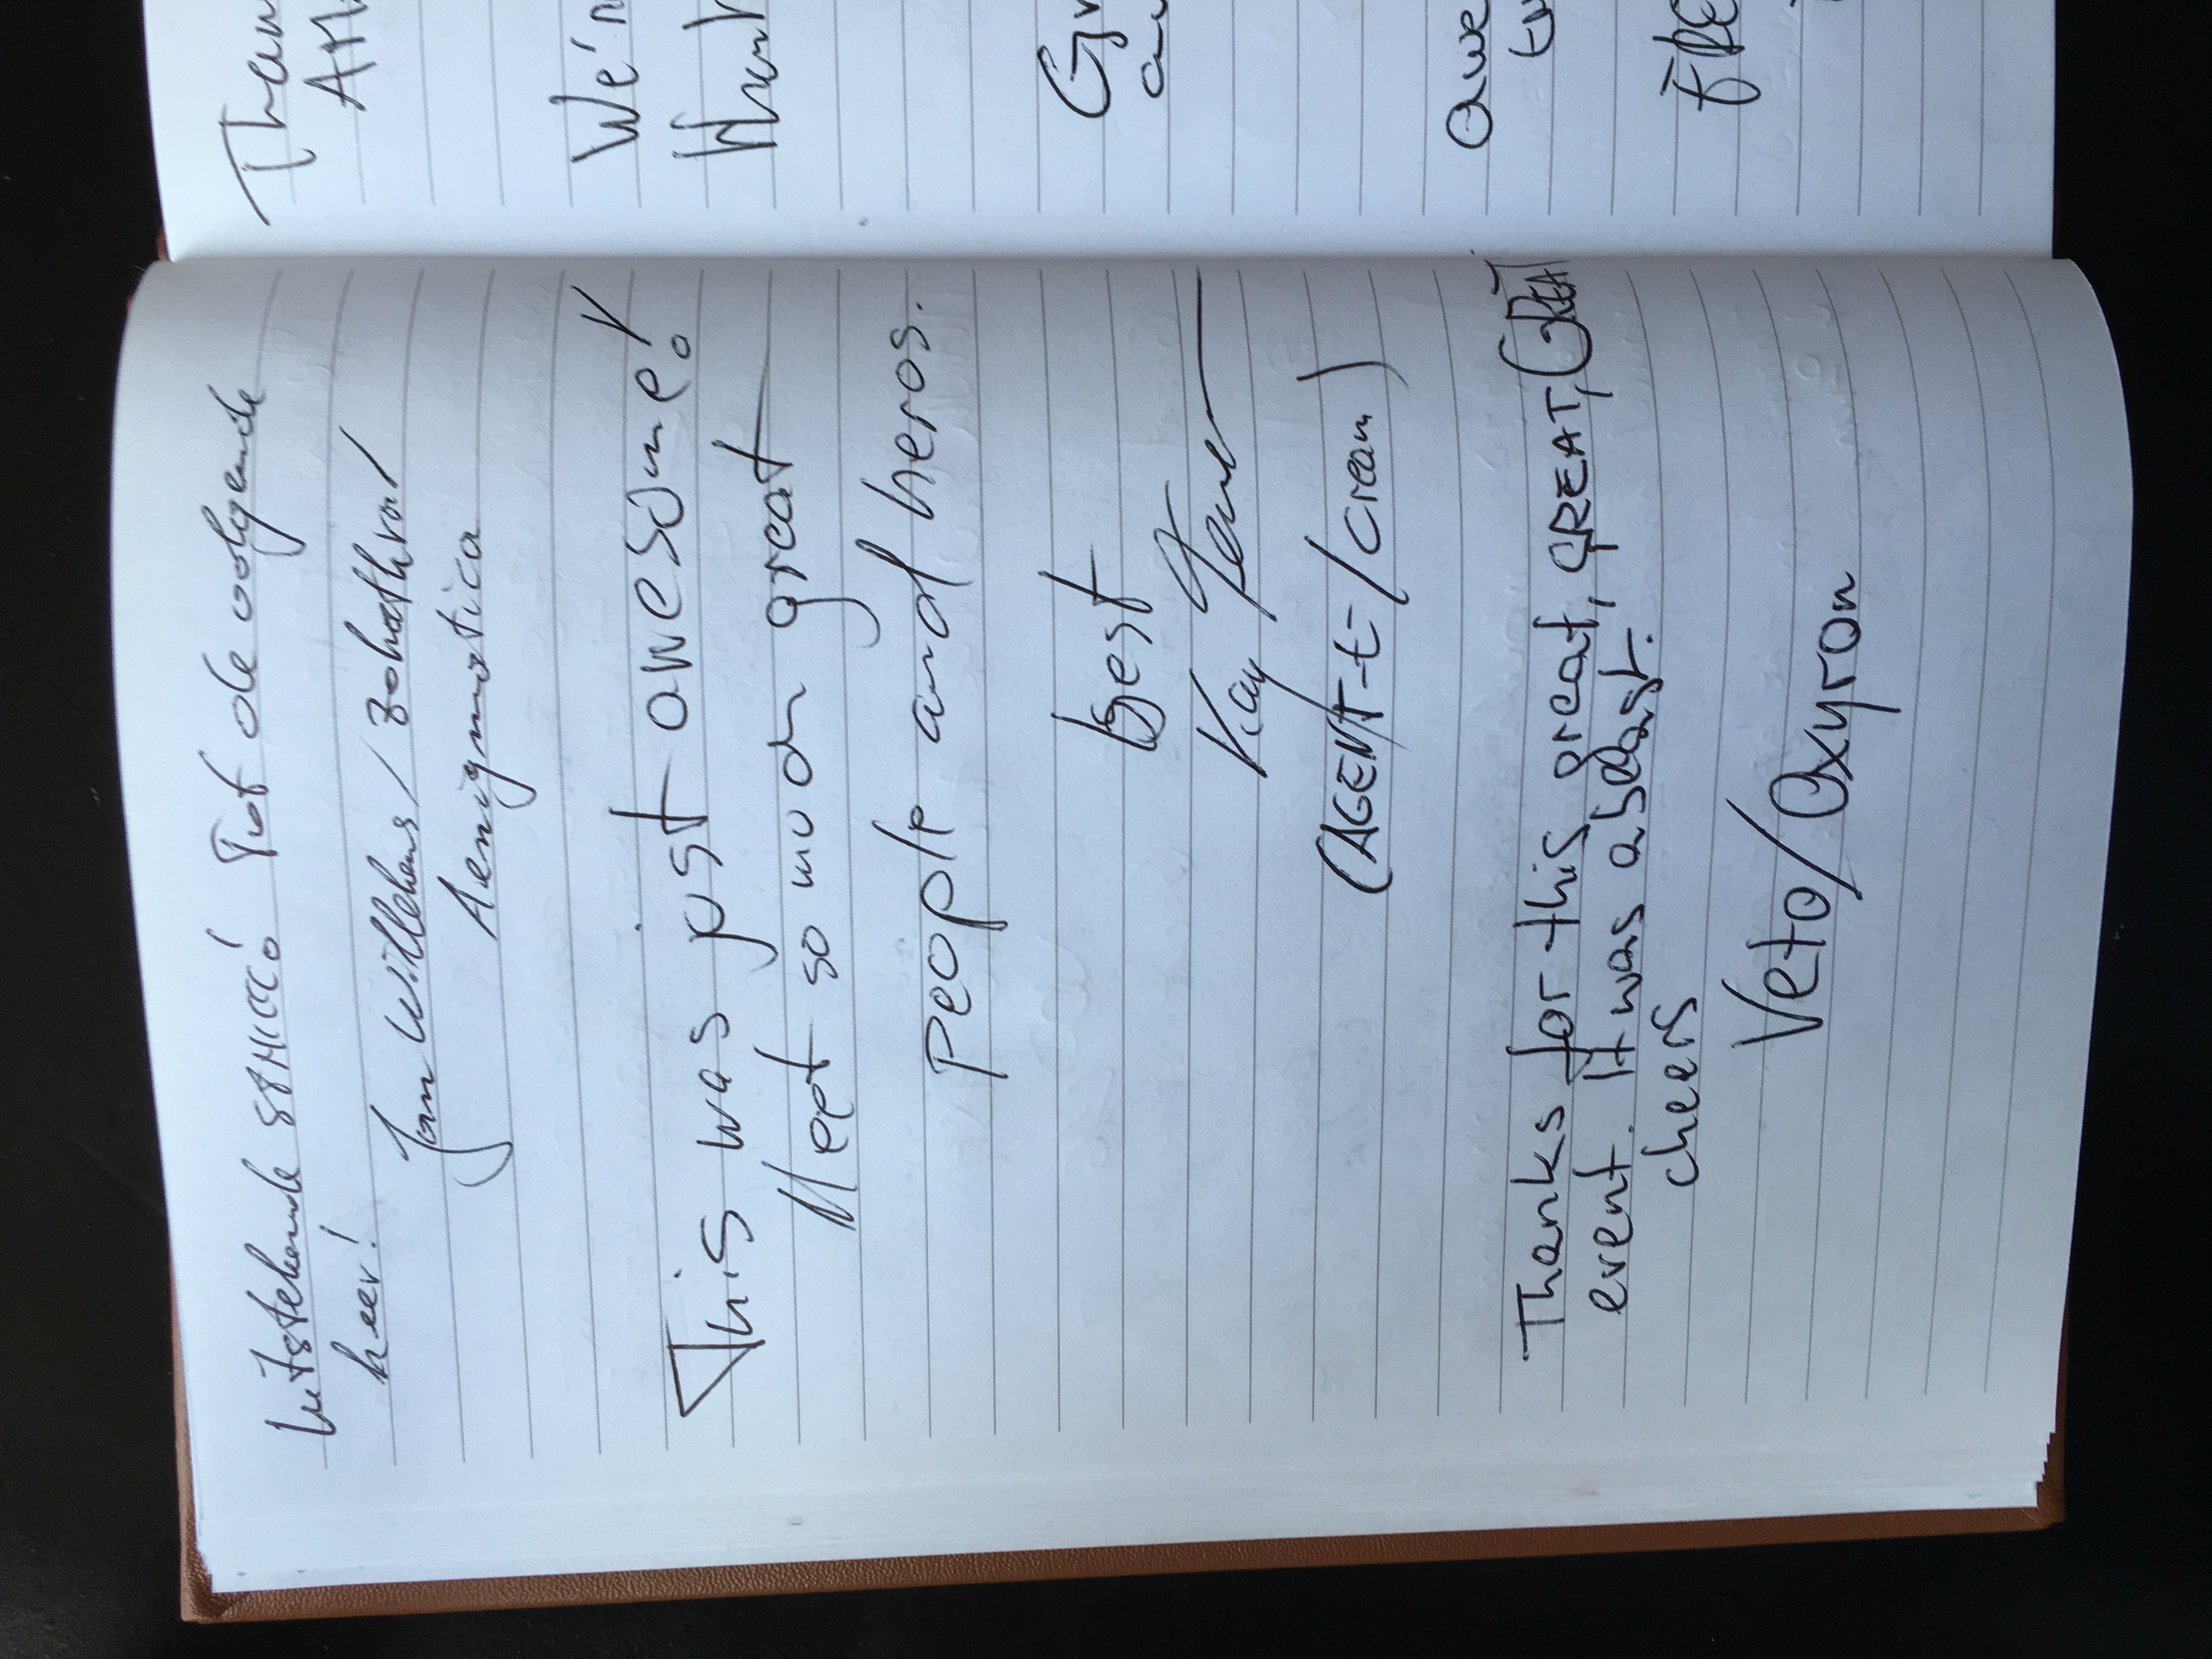 Uitstekende Tot de volgende
keer!
Jan Willekens / Zonathral
Aenigmatica
This was just awesome!
Meet so much great
People and heros.
best
Kay
(AGENT-t / Cream)
Thanks for this great, GREAT, GREAT
event. It was a beast.
cheers
Veto/Oxyron
We'n
awe